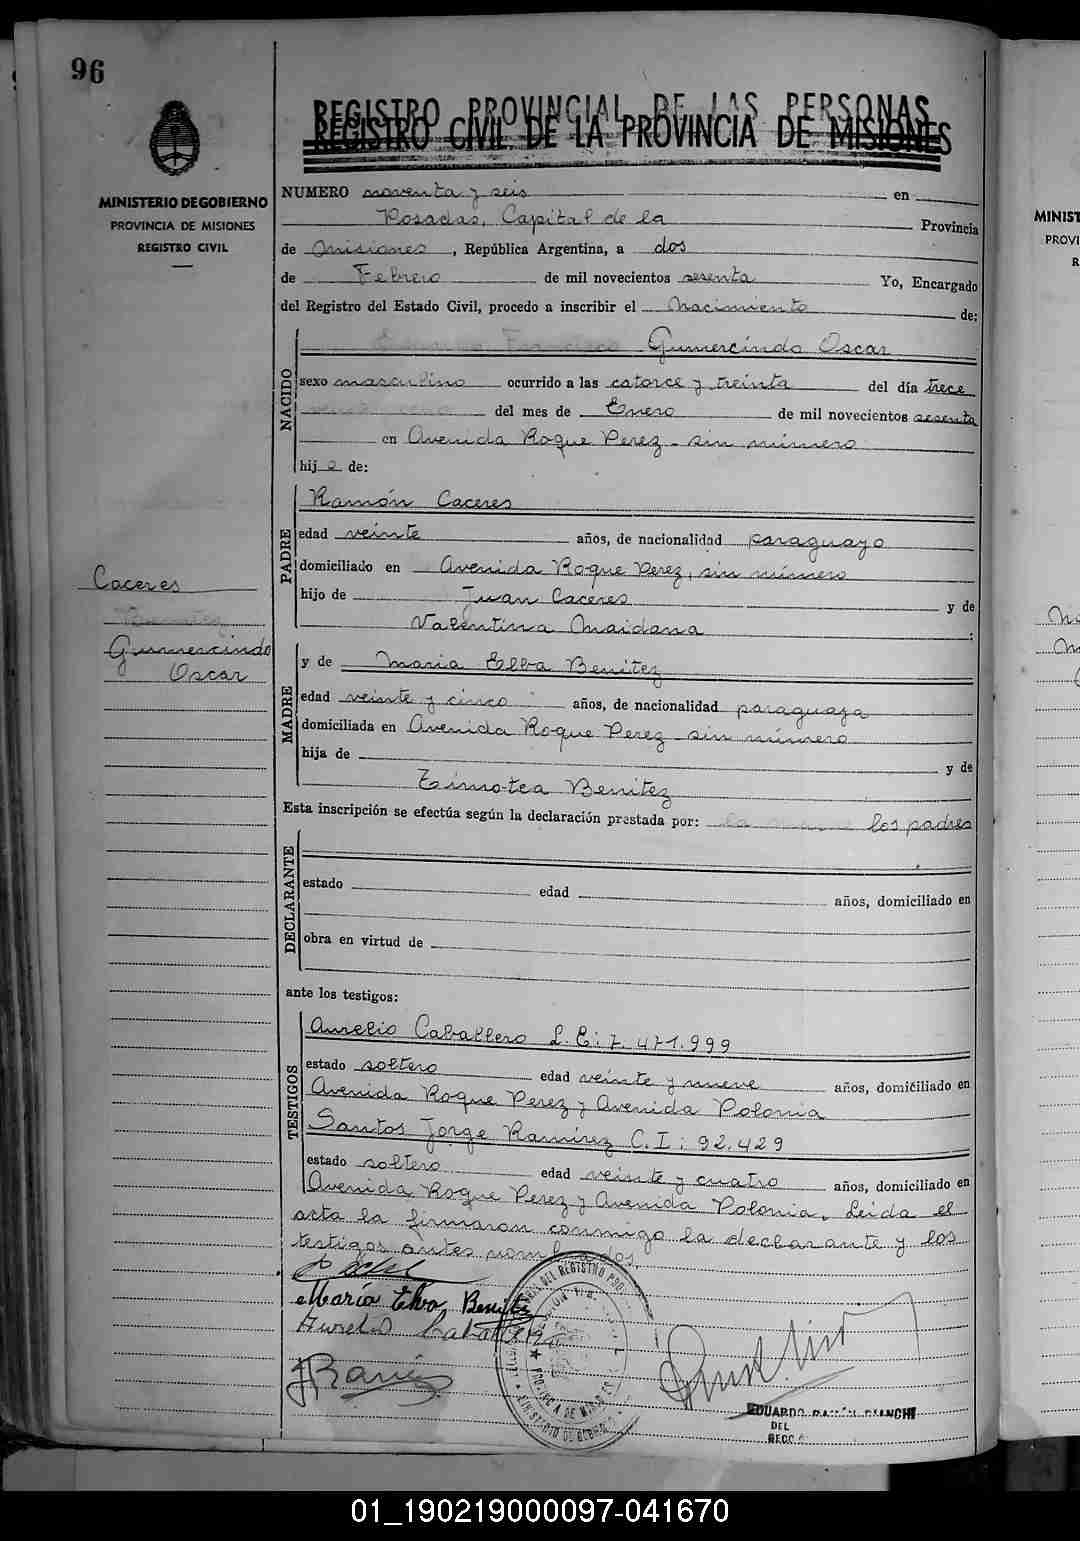 96
REGISTRO PROVINCIAL DE LAS PERSONAS
REGISTRO CIVIL DE LA PROVINCIA DE MISIONES
MINISTERIO DE GOBIERNO
PROVINCIA DE MISIONES
REGISTRO CIVIL
NUMERO noventa y seis en
Posadas, Capital de la Provincia
de Misiones, República Argentina, a dos
de Febrero de mil novecientos sesenta Yo, Encargado
del Registro del Estado Civil, procedo a inscribir el Nacimiento de:
NACIDO
Francisco Gumercindo Oscar
sexo masculino ocurrido a las catorce y treinta del día trece
del mes de Enero de mil novecientos sesenta
en Avenida Roque Perez - sin número
hijo de:
PADRE
Ramón Caceres
edad veinte años, de nacionalidad paraguayo
domiciliado en Avenida Roque Perez, sin número
hijo de Juan Caceres y de
Valentina Maidana
Caceres
Benitez
Gumercindo
Oscar
MADRE
y de Maria Elba Benitez
edad veinte y cinco años, de nacionalidad paraguaya
domiciliada en Avenida Roque Perez - sin número
hija de y de
Timotea Benitez
Esta inscripción se efectúa según la declaración prestada por: la los padres
DECLARANTE
estado edad años, domiciliado en
obra en virtud de
ante los testigos:
TESTIGOS
Aurelio Caballero L.E: 7.471.999
estado soltero edad veinte y nueve años, domiciliado en
Avenida Roque Perez y Avenida Polonia
Santos Jorge Ramirez C.I: 92.429
estado soltero edad veinte y cuatro años, domiciliado en
Avenida Roque Perez y Avenida Polonia. Leida el
acta la firmaron conmigo la declarante y los
testigos antes nombrados
María Elva Benitez
Aurelio Caballero
EDUARDO RAMÓN BIANCHI
DEL
MINIST
PROVI
R
01_190219000097-041670